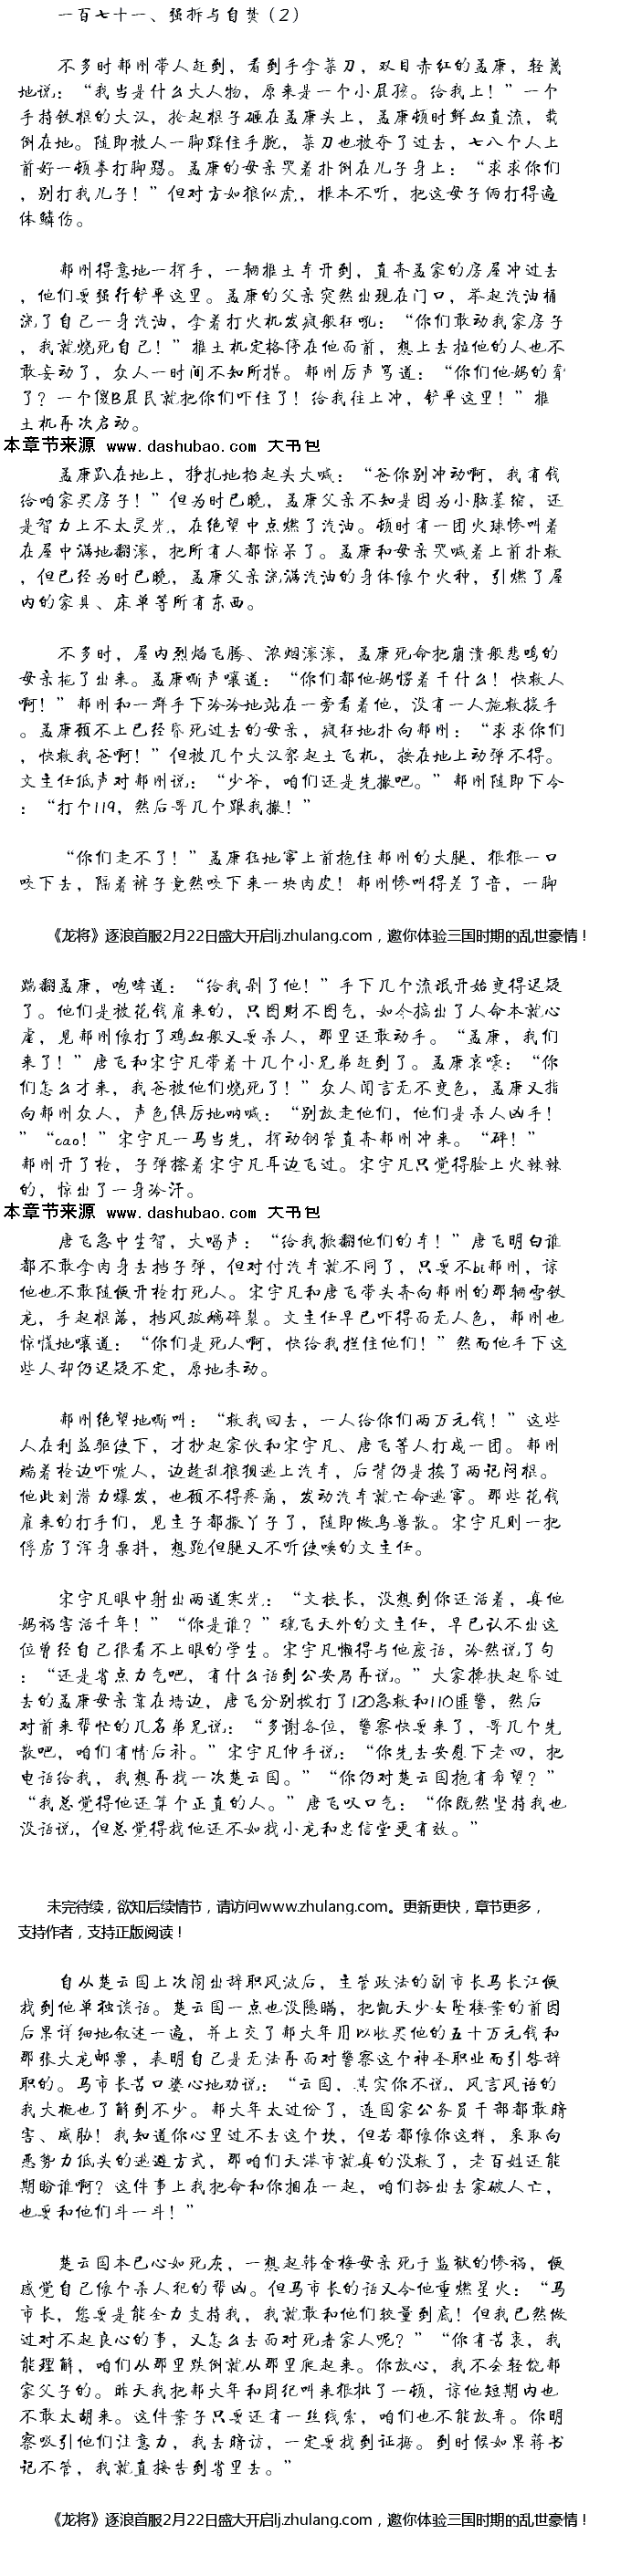 一百七十一、强拆与自焚（2）
不多时郝刚带人赶到，看到手拿菜刀，双目赤红的孟康，轻蔑
地说：“我当是什么大人物，原来是一个小屁孩。给我上！”一个
手持铁棍的大汉，抡起棍子砸在孟康头上，孟康顿时鲜血直流，栽
倒在地。随即被人一脚踩住手腕，菜刀也被夺了过去，七八个人上
前好一顿拳打脚踢。孟康的母亲哭着扑倒在儿子身上：“求求你们
，别打我儿子！”但对方如狼似虎，根本不听，把这母子俩打得遍
体鳞伤。
郝刚得意地一挥手，一辆推土车开到，直奔孟家的房屋冲过去
，他们要强行铲平这里。孟康的父亲突然出现在门口，举起汽油桶
浇了自己一身汽油，拿着打火机发疯般狂吼：“你们敢动我家房子
，我就烧死自己！”推土机定格停在他面前，想上去拉他的人也不
敢妄动了，众人一时间不知所措。郝刚厉声骂道：“你们他妈的聋
了？一个傻B屁民就把你们吓住了！给我往上冲，铲平这里！”推
土机再次启动。
本章节来源 www.dashubao.com 大书包
孟康趴在地上，挣扎地抬起头大喊：“爸你别冲动啊，我有钱
给咱家买房子！”但为时已晚，孟康父亲不知是因为小脑萎缩，还
是智力上不太灵光，在绝望中点燃了汽油。顿时有一团火球惨叫着
在屋中满地翻滚，把所有人都惊呆了。孟康和母亲哭喊着上前扑救
，但已经为时已晚，孟康父亲浇满汽油的身体像个火种，引燃了屋
内的家具、床单等所有东西。
不多时，屋内烈焰飞腾、浓烟滚滚，孟康死命把崩溃般悲鸣的
母亲拖了出来。孟康嘶声嚷道：“你们都他妈愣着干什么！快救人
啊！”郝刚和一群手下冷冷地站在一旁看着他，没有一人施救援手
。孟康顾不上已经昏死过去的母亲，疯狂地扑向郝刚：“求求你们
，快救我爸啊！”但被几个大汉架起土飞机，按在地上动弹不得。
文主任低声对郝刚说：“少爷，咱们还是先撤吧。”郝刚随即下令
：“打个119，然后哥几个跟我撤！”
“你们走不了！”孟康猛地窜上前抱住郝刚的大腿，狠狠一口
咬下去，隔着裤子竟然咬下来一块肉皮！郝刚惨叫得差了音，一脚
《龙将》逐浪首服2月22日盛大开启lj.zhulang.com，邀你体验三国时期的乱世豪情！
踹翻孟康，咆哮道：“给我剁了他！”手下几个流氓开始变得迟疑
了。他们是被花钱雇来的，只图财不图气，如今搞出了人命本就心
虚，见郝刚像打了鸡血般又要杀人，那里还敢动手。“孟康，我们
来了！”唐飞和宋宇凡带着十几个小兄弟赶到了。孟康哀嚎：“你
们怎么才来，我爸被他们烧死了！”众人闻言无不变色，孟康又指
向郝刚众人，声色俱厉地呐喊：“别放走他们，他们是杀人凶手！
”“cao！”宋宇凡一马当先，挥动钢管直奔郝刚冲来。“砰！”
郝刚开了枪，子弹擦着宋宇凡耳边飞过。宋宇凡只觉得脸上火辣辣
的，惊出了一身冷汗。
本章节来源 www.dashubao.com 大书包
唐飞急中生智，大喝声：“给我掀翻他们的车！”唐飞明白谁
都不敢拿肉身去挡子弹，但对付汽车就不同了，只要不bī郝刚，谅
他也不敢随便开枪打死人。宋宇凡和唐飞带头奔向郝刚的那辆雪铁
龙，手起棍落，挡风玻璃碎裂。文主任早已吓得面无人色，郝刚也
惊慌地嚷道：“你们是死人啊，快给我拦住他们！”然而他手下这
些人却仍迟疑不定，原地未动。
郝刚绝望地嘶叫：“救我回去，一人给你们两万元钱！”这些
人在利益驱使下，才抄起家伙和宋宇凡、唐飞等人打成一团。郝刚
端着枪边吓唬人，边趁乱狼狈逃上汽车，后背仍是挨了两记闷棍。
他此刻潜力爆发，也顾不得疼痛，发动汽车就亡命逃窜。那些花钱
雇来的打手们，见主子都撤丫子了，随即做鸟兽散。宋宇凡则一把
俘虏了浑身栗抖，想跑但腿又不听使唤的文主任。
宋宇凡眼中射出两道寒光：“文校长，没想到你还活着，真他
妈祸害活千年！”“你是谁？”魂飞天外的文主任，早已认不出这
位曾经自己很看不上眼的学生。宋宇凡懒得与他废话，冷然说了句
：“还是省点力气吧，有什么话到公安局再说。”大家搀扶起昏过
去的孟康母亲靠在墙边，唐飞分别拨打了120急救和110匪警，然后
对前来帮忙的几名弟兄说：“多谢各位，警察快要来了，哥几个先
散吧，咱们有情后补。”宋宇凡伸手说：“你先去安慰下老四，把
电话给我，我想再找一次楚云国。”“你仍对楚云国抱有希望？”
“我总觉得他还算个正直的人。”唐飞叹口气：“你既然坚持我也
没话说，但总觉得找他还不如找小龙和忠信堂更有效。”
未完待续，欲知后续情节，请访问www.zhulang.com。更新更快，章节更多，
支持作者，支持正版阅读！
自从楚云国上次闹出辞职风波后，主管政法的副市长马长江便
找到他单独谈话。楚云国一点也没隐瞒，把凯天少女坠楼案的前因
后果详细地叙述一遍，并上交了郝大年用以收买他的五十万元钱和
那张大龙邮票，表明自己是无法再面对警察这个神圣职业而引咎辞
职的。马市长苦口婆心地劝说：“云国，其实你不说，风言风语的
我大概也了解到不少。郝大年太过份了，连国家公务员干部都敢暗
害、威胁！我知道你心里过不去这个坎，但若都像你这样，采取向
恶势力低头的逃避方式，那咱们天港市就真的没救了，老百姓还能
期盼谁啊？这件事上我把命和你捆在一起，咱们豁出去家破人亡，
也要和他们斗一斗！”
楚云国本已心如死灰，一想起韩金梅母亲死于监狱的惨祸，便
感觉自己像个杀人犯的帮凶。但马市长的话又令他重燃星火：“马
市长，您要是能全力支持我，我就敢和他们较量到底！但我已然做
过对不起良心的事，又怎么去面对死者家人呢？”“你有苦衷，我
能理解，咱们从那里跌倒就从那里爬起来。你放心，我不会轻饶郝
家父子的。昨天我把郝大年和周纪叫来狠批了一顿，谅他短期内也
不敢太胡来。这件案子只要还有一丝线索，咱们也不能放弃。你明
察吸引他们注意力，我去暗访，一定要找到证据。到时候如果蒋书
记不管，我就直接告到省里去。”
《龙将》逐浪首服2月22日盛大开启lj.zhulang.com，邀你体验三国时期的乱世豪情！